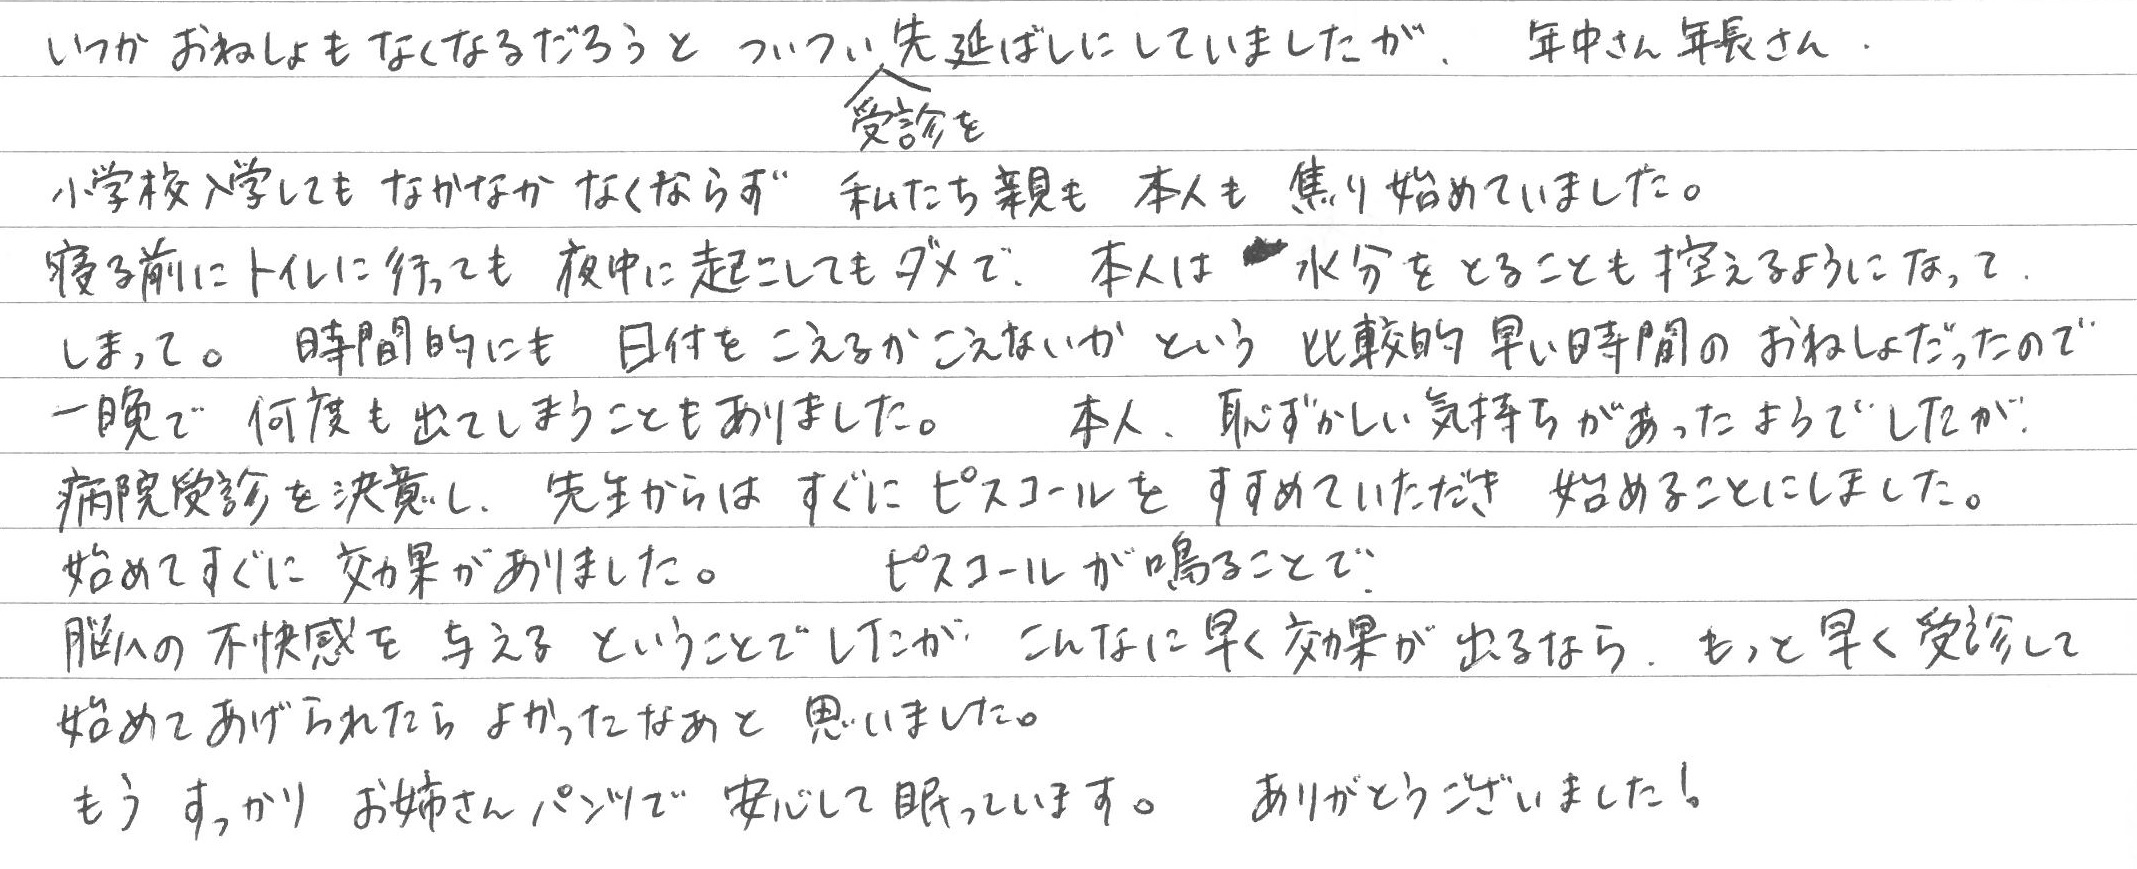 いつか おねしょも なくなるだろうと ついつい 先延ばしにしていましたが、 年中さん 年長さん、
受診を
小学校入学しても なかなか なくならず 私たち親も 本人も 焦り始めていました。
寝る前に トイレに行っても 夜中に起こしてもダメで、 本人は 水分をとることも控えるようになって
しまって。 時間的にも 日付をこえるかこえないか という 比較的 早い時間の おねしょだったので
一晩で 何度も出てしまうこともありました。 本人、恥ずかしい気持ちがあったようでしたが、
病院受診を決意し、 先生からは すぐに ピスコールを すすめていただき 始めることにしました。
始めてすぐに 効果がありました。 ピスコールが鳴ることで、
脳への 不快感を 与える ということでしたが、 こんなに早く効果が出るなら、もっと早く受診して
始めてあげられたら よかったなあと 思いました。
もう すっかり お姉さんパンツで 安心して眠っています。 ありがとうございました!